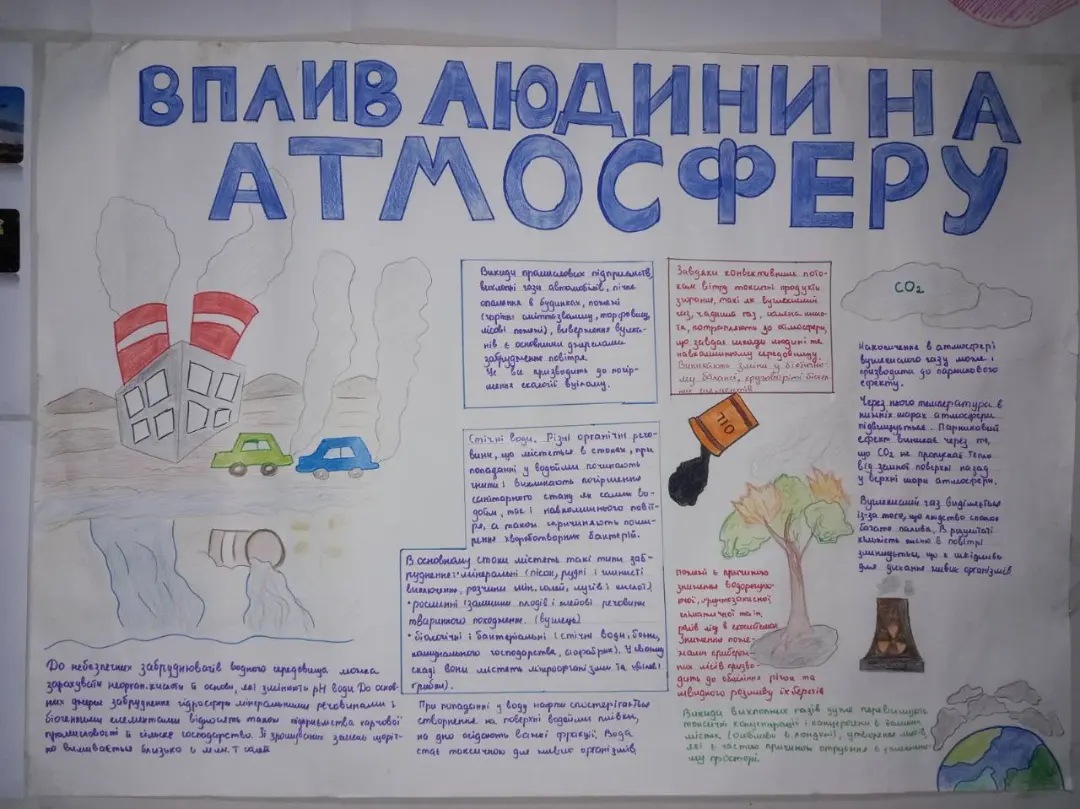 ВПЛИВ ЛЮДИНИ НА
АТМОСФЕРУ
Викиди промислових підприємств,
вихлопні гази автомобілів, пічне
опалення в будинках, пожежі
(горіння сміттєзвалищ, торфовищ,
лісові пожежі), виверження вулка-
нів є основними джерелами
забруднення повітря.
Це все призводить до погір-
шення екології вцілому.
Завдяки конвективним пото-
кам вітру токсичні продукти
згорання, такі як вуглекислий
газ, чадний газ,
та, потрапляють до атмосфери,
що завдає шкоди людині та
навколишньому середовищу.
Викликають зміни у біогічно-
му балансі, кругообігові
елементів
CO₂
Накопичення в атмосфері
вуглекислого газу може і
призводить до парникового
ефекту.
Через нього температура в
нижніх шарах атмосфери
підвищується. Парниковий
ефект виникає через те,
що CO₂ не пропускає тепло
від земної поверхні назад
у верхні шари атмосфери.
Вуглекислий газ виділяється
із-за того, що людство спалює
багато палива. В результаті
кількість кисню в повітрі
зменшується, що є шкідливо
для дихання живих організмів
Стічні води. Різні органічні речо-
вини, що містяться в стоках, при
попаданні у водойми починають
гнити і викликають погіршення
санітарного стану як самих во-
дойм, так і навколишнього повіт-
ря, а також спричиняють поши-
рення хвороботворних бактерій.
В основному стоки містять такі типи заб-
руднення: • мінеральні (пісок, рудні і глинисті
включення, розчини мін. солей, лугів і кислот).
• рослинні (залишки плодів і жейові речовини
тваринного походження. (вуглець)
• біологічні і бактеріальні (стічні води, бойні,
комунального господарства, біофабрик). У своєму
скаді вони містять мікроорганізми та
гриби).
OIL
пожежі є причиною
зниження водоохорон-
ної, ґрунтозахисної
кліматичної та ін.
ролів лід в екосистемах
Знищення пожежами прибереж-
них лісів призво-
дить до обміління річок та
швидкого розмиву їх берегів
До небезпечних забруднювачів водного середовища можна
зарахувати неорган. кислоти й основи, які змінюють pH води. До основ-
них джерел забруднення гідросфери мінеральними речовинами і
біогенними елементами відносять також підприємства харчової
промисловості й сільське господарство. Зі зрошуваних земель щоріч-
но вимивається близько 6 млн. т солей
При попаданні у воду нафти спостерігається
створення на поверхні водойми плівки,
на дно осідають важкі фракції. Вода
стає токсичною для живих організмів
Викиди вихлопних газів дуже перевищують
токсичні концетрації і канцерогени в великих
містах (особливо в Лондоні), утворення
які є частою причиною отруєння в
му просторі.